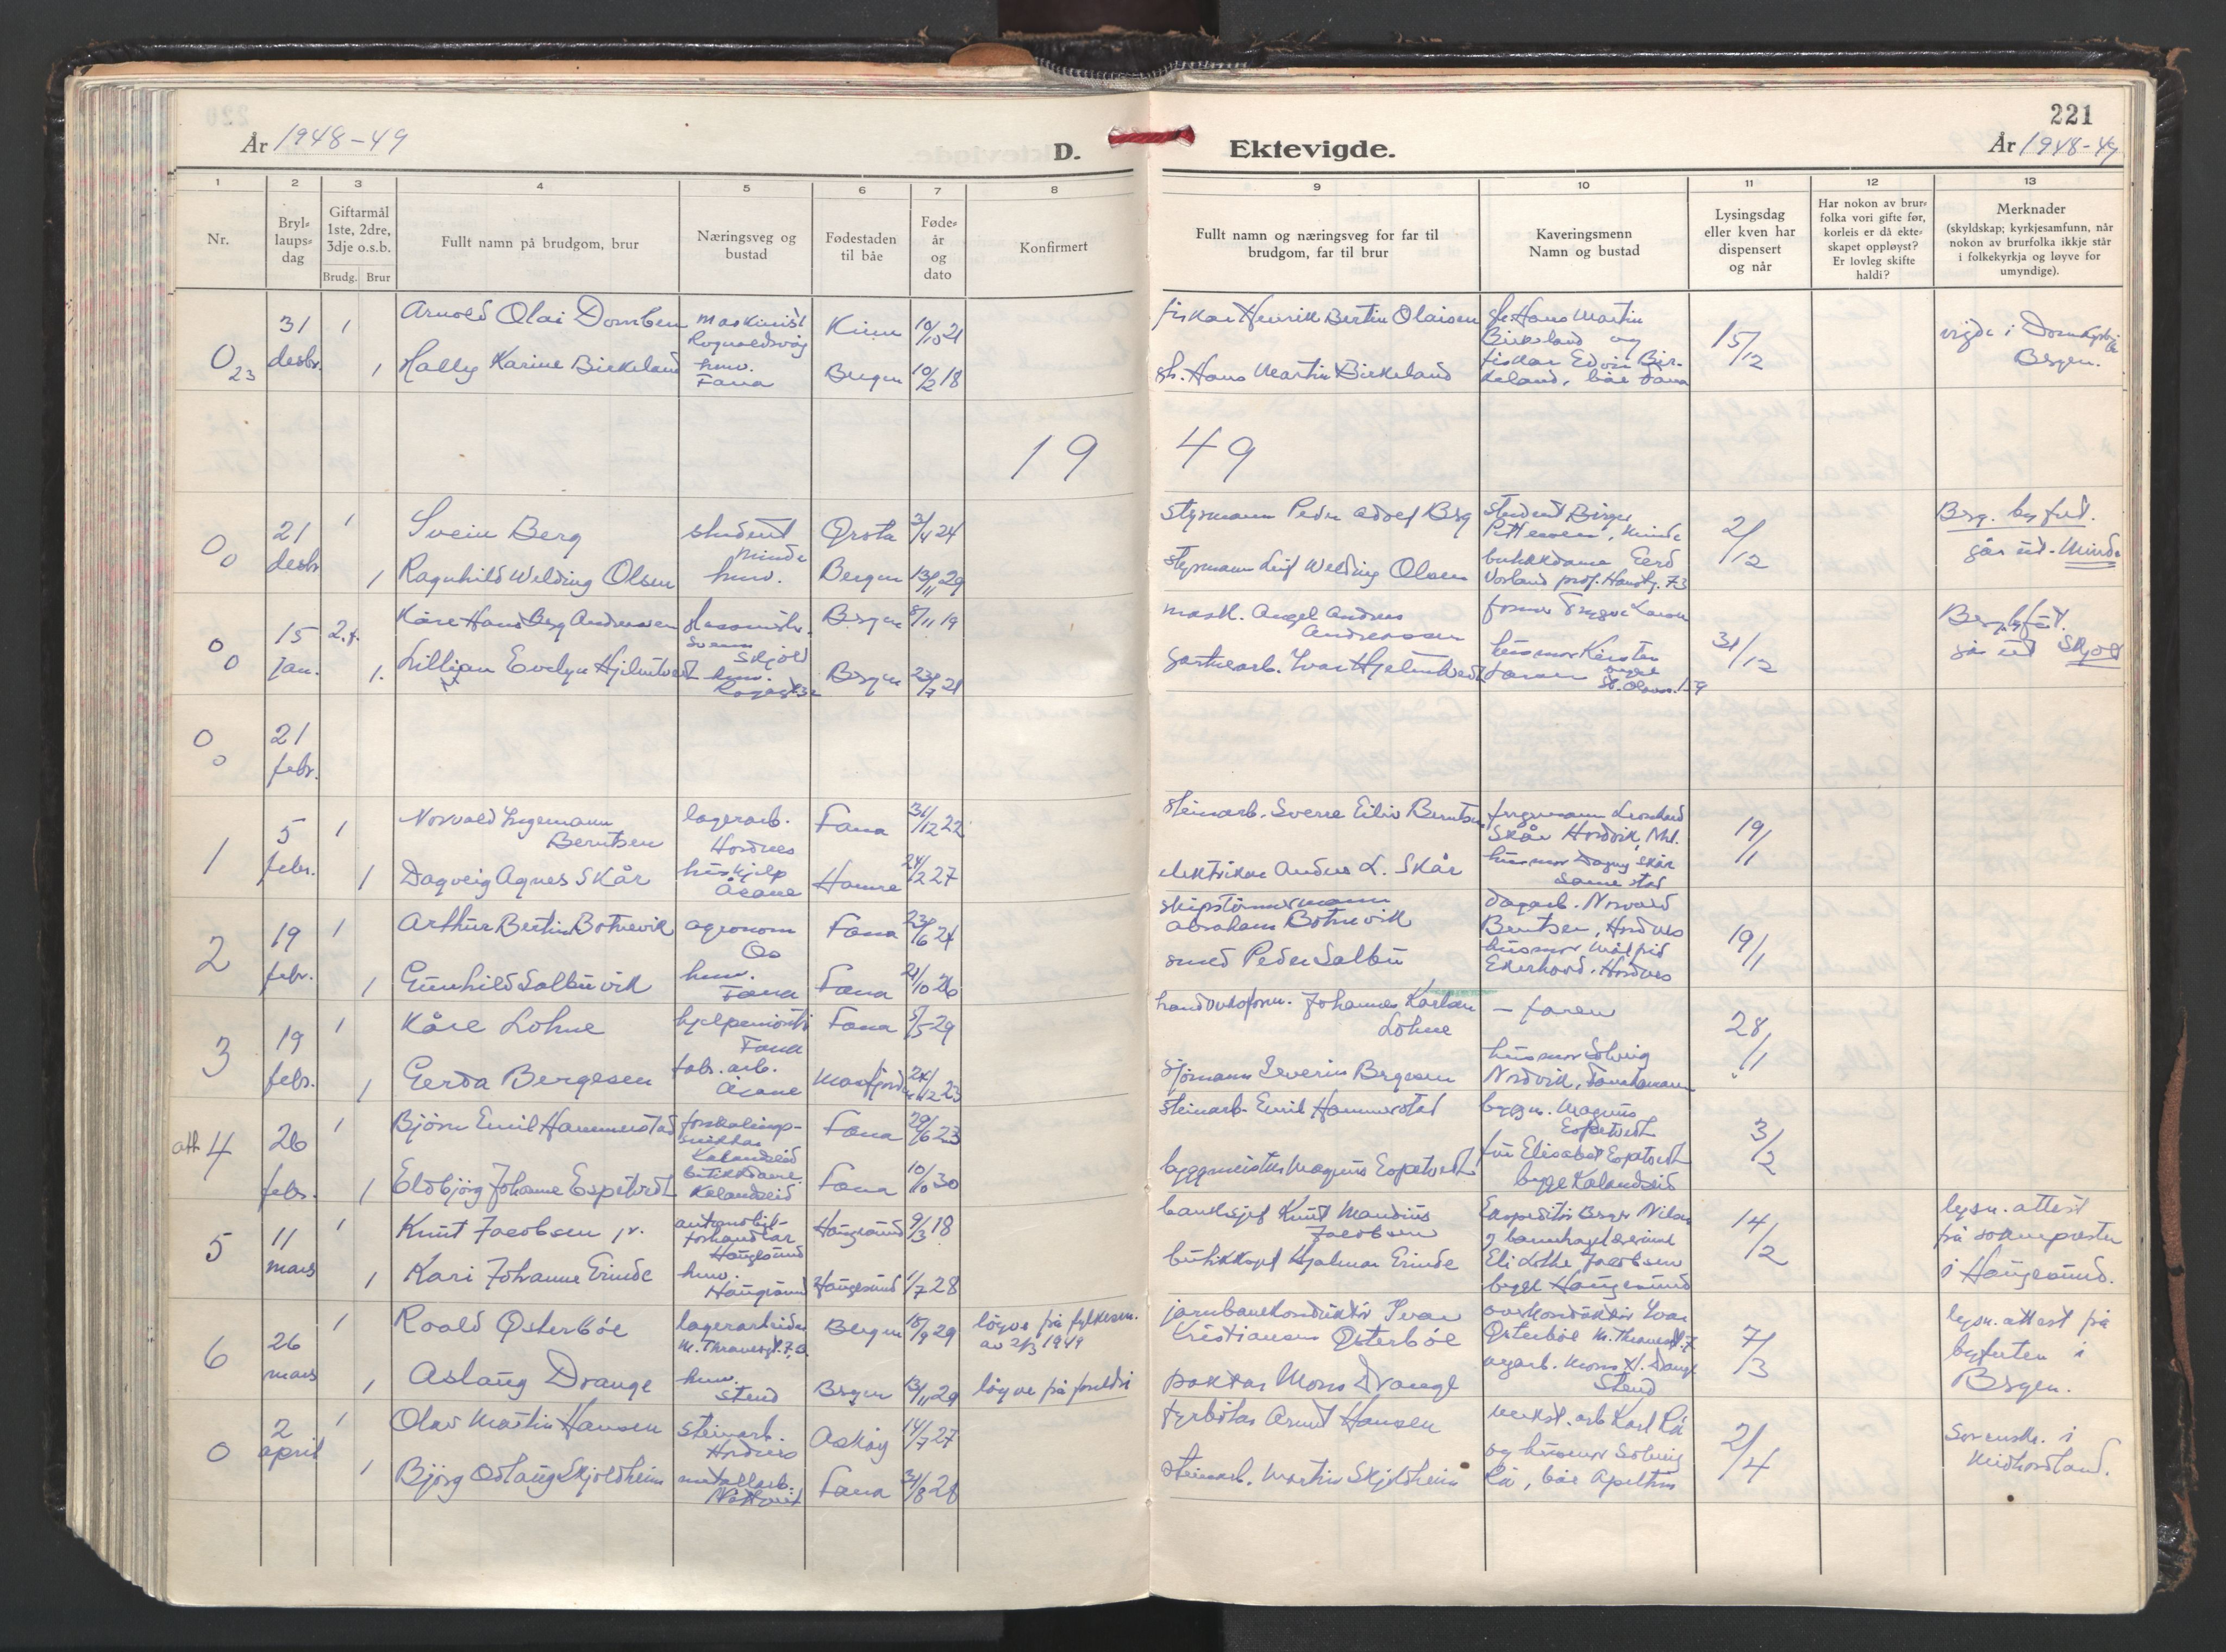 221
År 1948-49
D.
Ektevigde.
År 1948-49
1
2
3
4
5
6
7
8
9
10
11
12
13
Nr.
Bryl-
laups-
dag
Giftarmål
1ste, 2dre,
3dje o.s.b.
Brudg. Brur
Fullt namn på brudgom, brur
Næringsveg og
bustad
Fødestaden
til båe
Føde-
år
og
dato
Konfirmert
Fullt namn og næringsveg for far til
brudgom, far til brur
Kaveringsmenn
Namn og bustad
Lysingsdag
eller kven har
dispensert
og når
Har nokon av brur-
folka vori gifte før,
korleis er då ekte-
skapet oppløyst?
Er lovleg skifte
haldi?
Merknader
(skyldskap; kyrkjesamfunn, når
nokon av brurfolka ikkje står
i folkekyrkja og løyve for
umyndige).
0 23
31 desbr.
1
Arnold Olai Domben
maskinist
Kinn
10/10 21
fiskar Henrik Bertin Olaisen
gb. Hans Martin
Birkeland og
fiskar Edvin Bir-
keland, båe Fana
15/12
vigde i Domkyrkja
Bergen.
1
Hally Karine Birkeland
hmv.
Fana
Bergen
10/2 18
gb. Hans Martin Birkeland
19 49
0 0
21 desbr
1
Svein Berg
student
Minde
Ørsta
3/4 24
styrmann Peder Adolf Berg
student Birger
Pettersen, Minde
2/12
Berg. byfut.
går ut. Minde
1
Ragnhild Welding Olsen
hmv.
Bergen
13/11 29
styrmann Leif Welding Olsen
butikkdame Gerd
Vorland prof. Hanstg. 73
0 0
15 jan.
2. f.
Kåre Hans Berg Andreassen
Skjold
Bergen
8/11 19
mask. Angel Andreas
Andreassen
formann Trygve Larsen
31/12
Berg. byfut.
går ut Skjold
1.
Lillian Evelyn Hjelmtvedt
hmv.
Bergen
23/7 21
gartnerarb. Ivar Hjelmtvedt
husmor Kirsten
Larsen
0 0
21 febr.
1
5 febr.
1
Norvald Ingemann
Berntsen
lagerarb.
Hordnes
Fana
31/12 22
steinarb. Sverre Eiliv Berntsen
Skår Hordvik, Nhl.
19/1
1
Dagveig Agnes Skår
hushjelp
Åsane
Hamre
24/2 27
elektrikar Anders L. Skår
husmor Dagny Skår
same stad
2
19 febr.
1
Arthur Bertin Botnevik
agronom
Os
Fana
23/6 24
skipstømmermann
Abraham Botnevik
dagarb. Norvald
Berntsen, Hordnes
19/1
1
Gunhild Salbuvik
hmv.
Fana
Fana
21/10 26
smed Peder Salbu
husmor Målfrid
Ekerhovd. Hordnes
3
19 febr.
1
Kåre Lohne
hjelpemontør
Fana
Fana
5/5 29
Johannes Karlsen
Lohne
- faren
28/1
1
Gerda Bergesen
fab. arb.
Åsane
Masfjorden
24/12 23
sjømann Severin Bergesen
husmor Solveig
Nordvik, Fanahamaren
att. 4
26 febr.
1
Bjørn Emil Hammerstad
forskalings-
snikkar
Kalandseid
Fana
29/6 23
steinarb. Emil Hammerstad
byggm. Magnus
Espetvedt
3/2
1
Eldbjørg Johanne Espetvedt
butikkdame
Kalandseid
Fana
10/10 30
byggmeister Magnus Espetvedt
fru Elisabet Espetvedt
begge Kalandseid
5
11 mars
1
Knut Jacobsen jr.
automobil-
forhandlar
Haugesund
Haugesund
9/3 18
banksjef Knut Mandius
Jacobsen
Ekspeditør Berger Nilsen
og barnhagelærerinne
14/2
lysn. attest
frå soknepresten
i Haugesund.
1
Kari Johanne Erinde
hmv.
Haugesund
Haugesund
1/7 28
butikksjef Hjalmar Erinde
Eli Lothe Jacobsen
begge Haugesund
6
26 mars
1
Roald Østerbøe
lagerarbeider
M. Thranesgt. 7, B.
Bergen
10/9 29
løyve frå fylkesm.
av 2/3 1949
jarnbanekonduktør Ivar
Kristiansen Østerbøe
overkonduktør Ivar
Østerbøe M. Thranesgt. 7
7/3
lysn. attest frå
byfuten i
Bergen.
1
Aslaug Drange
hmv.
Stend
Bergen
13/11 29
løyve frå foreldri
paktar Mons Drange
vegarb. Mons N. Drange
Stend
0
2 april
1
Olav Martin Hansen
steinarb.
Hordnes
Askøy
14/7 27
fyrbøtar Arnt Hansen
verkst. arb Karl Rå
og husmor Solveig
2/4
Sorenskr. i
Midhordland.
1
Bjørg Oslaug Skjoldheim
metallarb.
Nattland
Fana
31/8 28
steinarb. Martin Skjoldheim
Rå, båe Apeltun